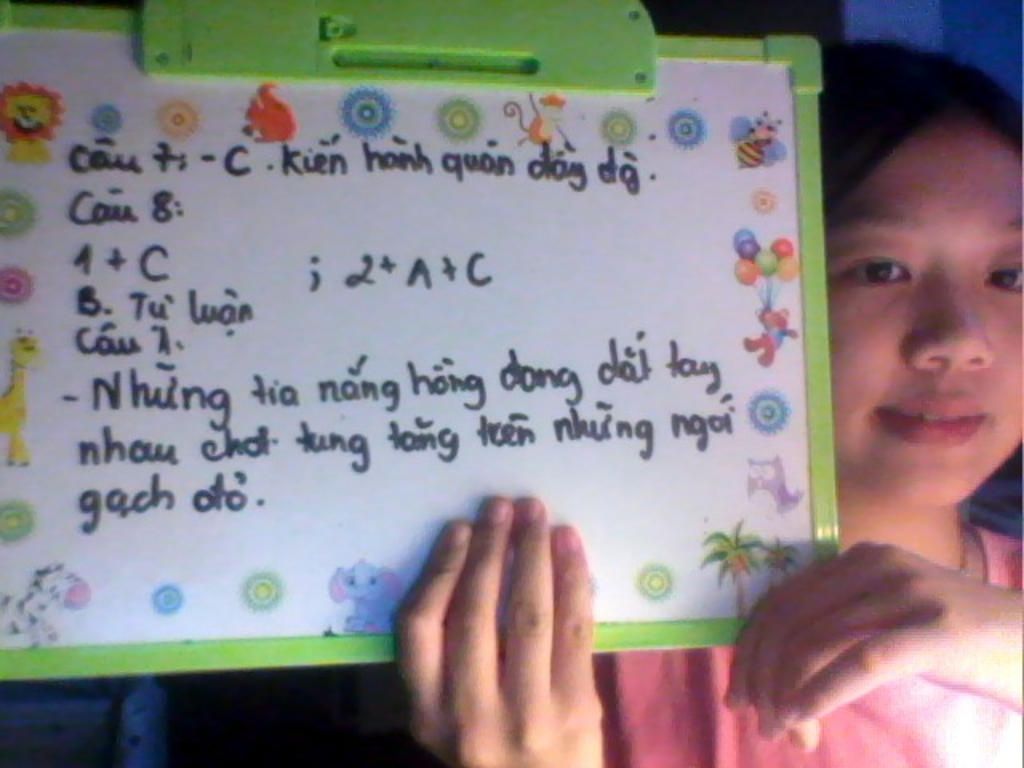 Câu 7: - C. kiến hành quân đầy đồ.
Câu 8:
1 + C ; 2 + A + C
B. Tự luận
Câu 1.
- Những tia nắng hồng đang dắt tay
nhau chơi tung tăng trên những ngói
gạch đỏ.